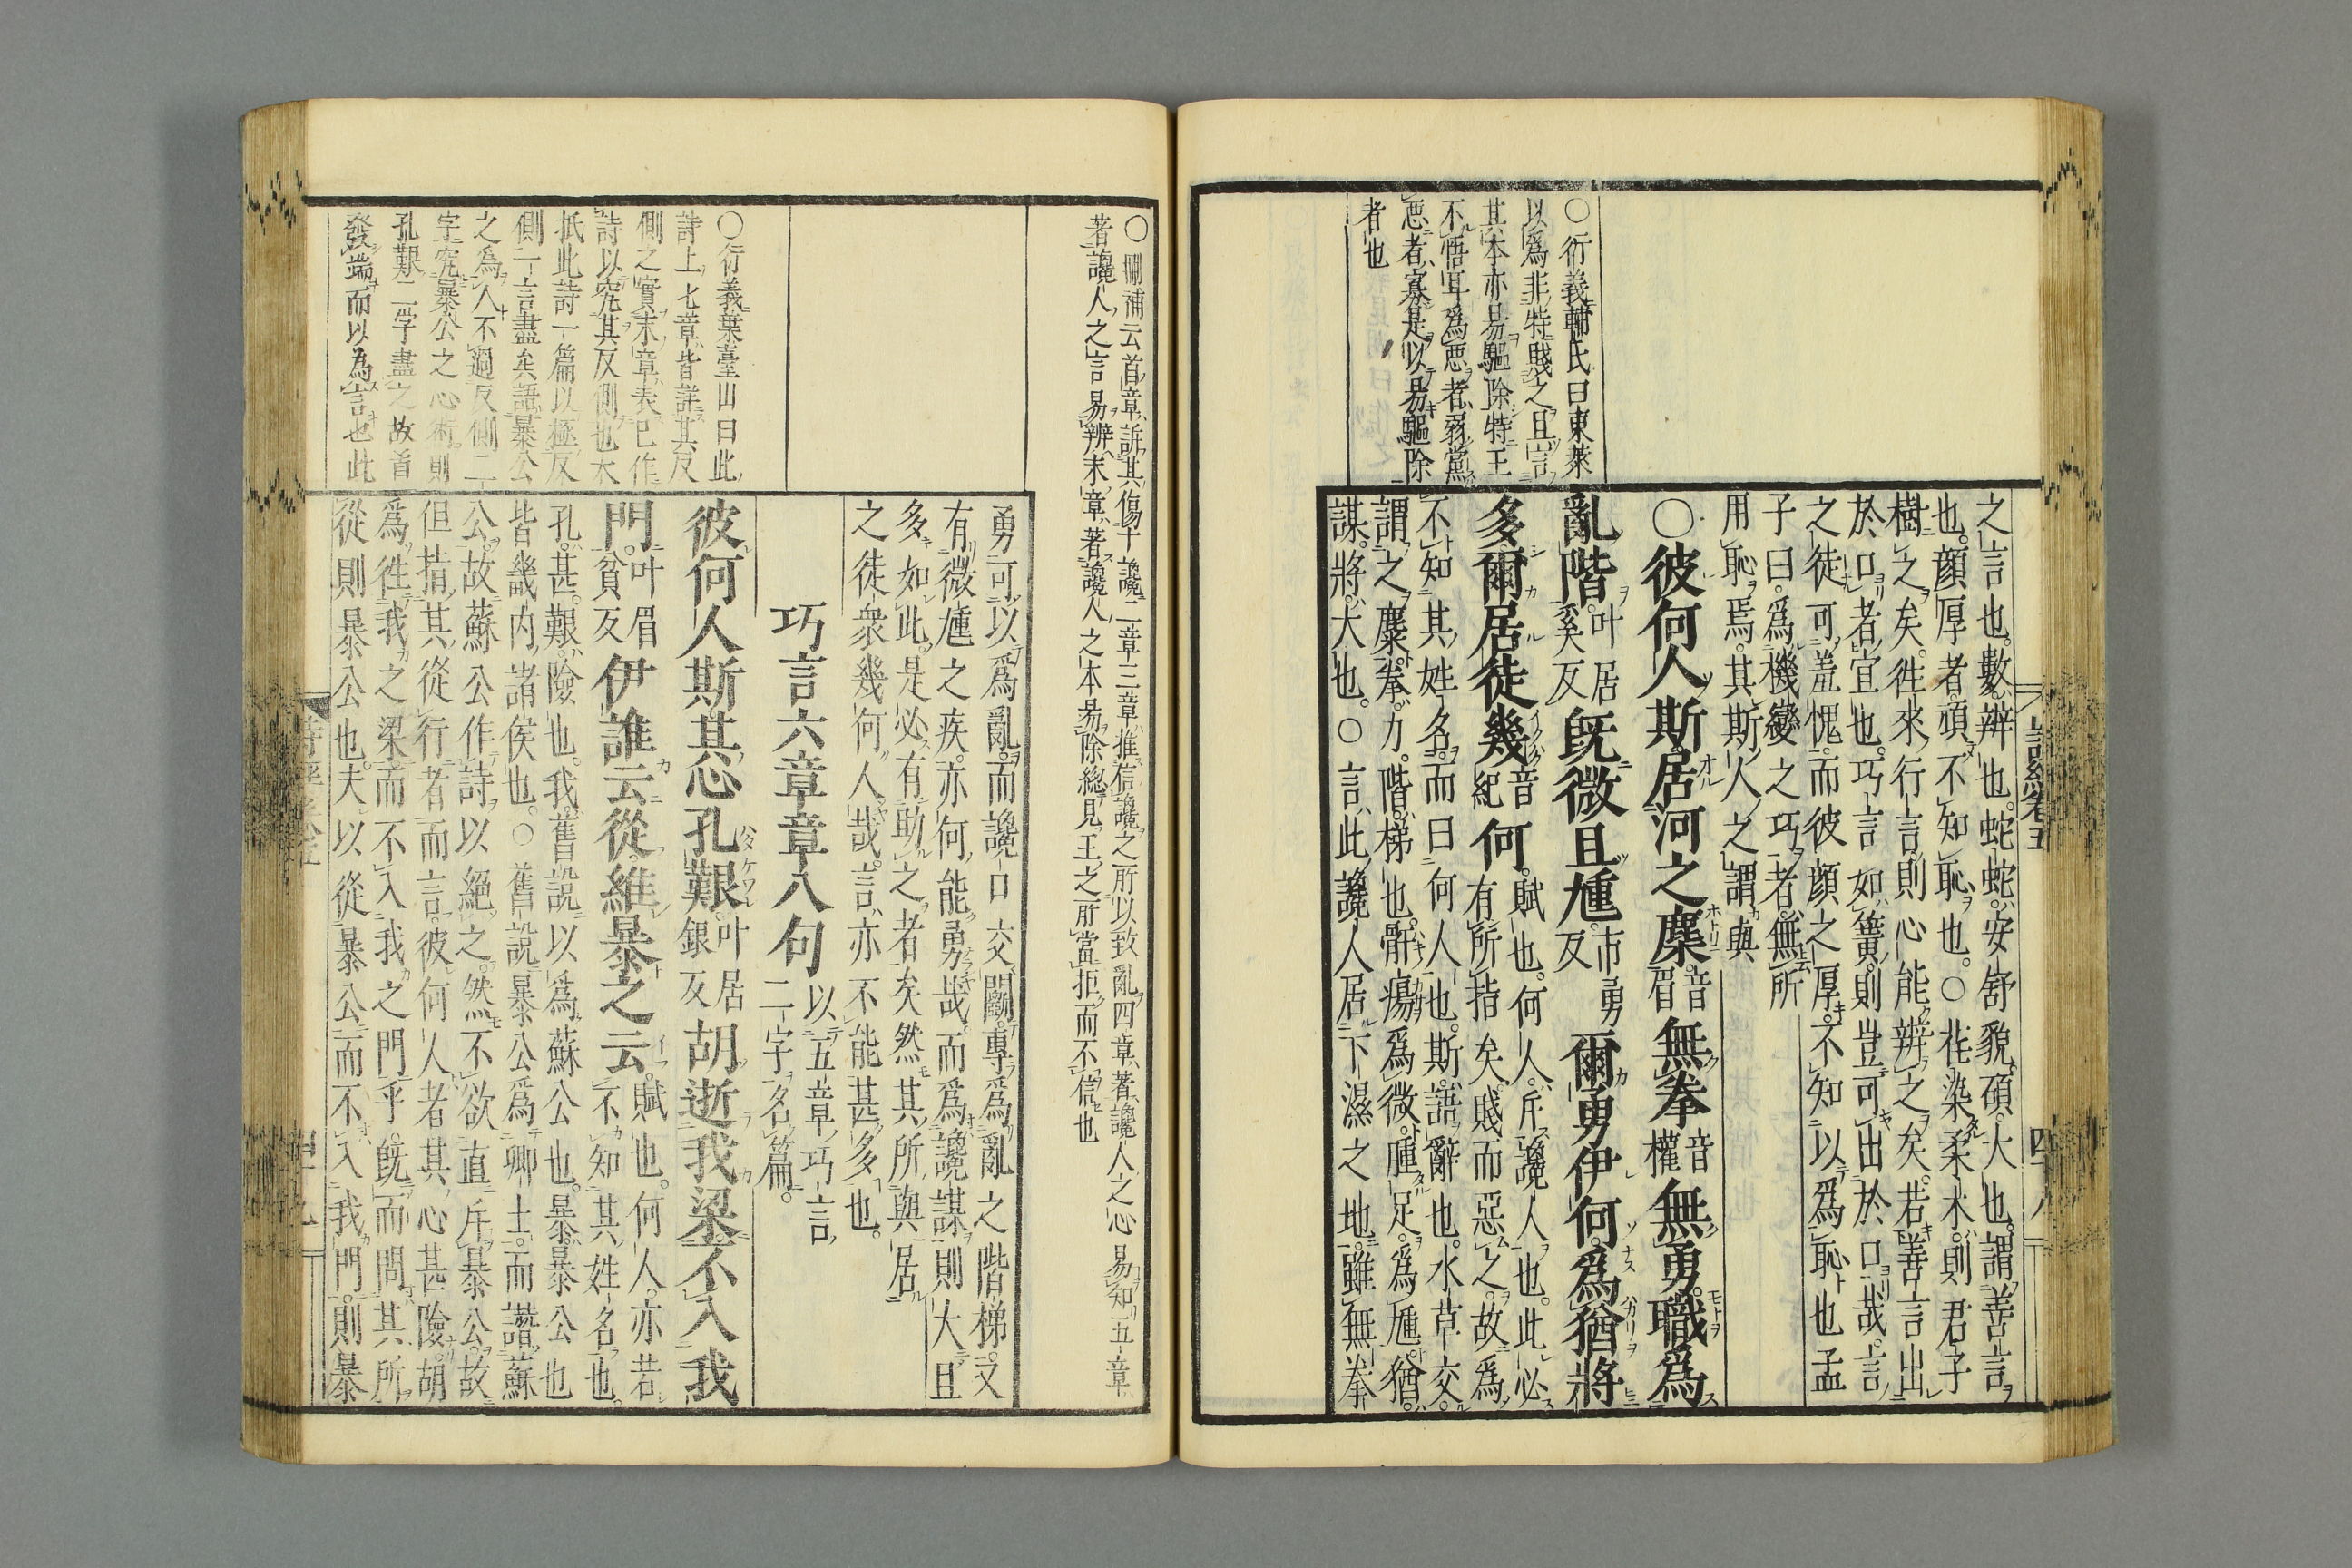 ○衍義輔氏曰東萊
以爲非特賤之且言
其本亦易驅除特王
不悟耳爲惡者弱黨
惡者寡是以易驅除
者也
之言也。數辨也。蛇蛇。安舒貌。碩。大也。謂善言
也。顏厚者。頑不知恥也。○荏染柔木。則君子
樹之矣。徃來行言。則心能辨之矣。若善言出
於口者。宜也。巧言如簧。則豈可出於口哉。言
之徒可羞愧。而彼顏之厚。不知以爲恥也孟
子曰。爲機變之巧者。無所
用恥焉。其斯人之謂與
○彼何人斯居河之麋。音眉無拳音權無勇。職爲
亂階。叶居奚反旣微且尰。市勇反爾勇伊何。爲猶將
多爾居徒幾音紀何。賦也。何人。斥讒人也。此必
有所指矣。賤而惡之。故爲
不知其姓名。而曰何人也。斯語辭也。水草交。
謂之麋。拳。力。階。梯也。骭瘍爲微。腫足。爲尰。猶。
謀。將。大也。○言此讒人居下濕之地。雖無拳
詩經卷五
四十八
○刪補云首章訴其傷于讒二章三章推信讒之所以致亂四章著讒人之心易知五章
著讒人之言易辨末章著讒人之本易除總見王之所當拒而不信也
勇可以爲亂。而讒口交鬬。專爲亂之階梯。又
有微尰之疾。亦何能勇哉。而爲讒謀則大且
多如此。是必有助之者矣然其所與居
之徒衆幾何人哉。言亦不能甚多也。
巧言六章章八句以五章巧言
二字名篇。
○衍義葉臺山曰此
詩上七章皆詳其反
側之實末章表已作
詩以究其反側也大
抵此詩一篇以極反
側二言盡矣語暴公
之爲人不過反側二
字究暴公之心術則
孔艱二字盡之故首
發端而以為言也此
彼何人斯其心孔艱叶居銀反胡逝我梁不入我
門。叶眉貧反伊誰云從。維暴之云。賦也。何人。亦若
不知其姓名也。
孔。甚。艱。險也。我。舊說以爲蘇公也。暴。暴公也
皆畿內諸侯也。○舊說暴公爲卿士。而譖蘇
公。故蘇公作詩以絕之。然不欲直斥暴公。故
但指其從行者而言。彼何人者其心甚險。胡
爲徃我之梁。而不入我之門乎。旣而問其所
從則暴公也。夫以從暴公而不入我門。則暴